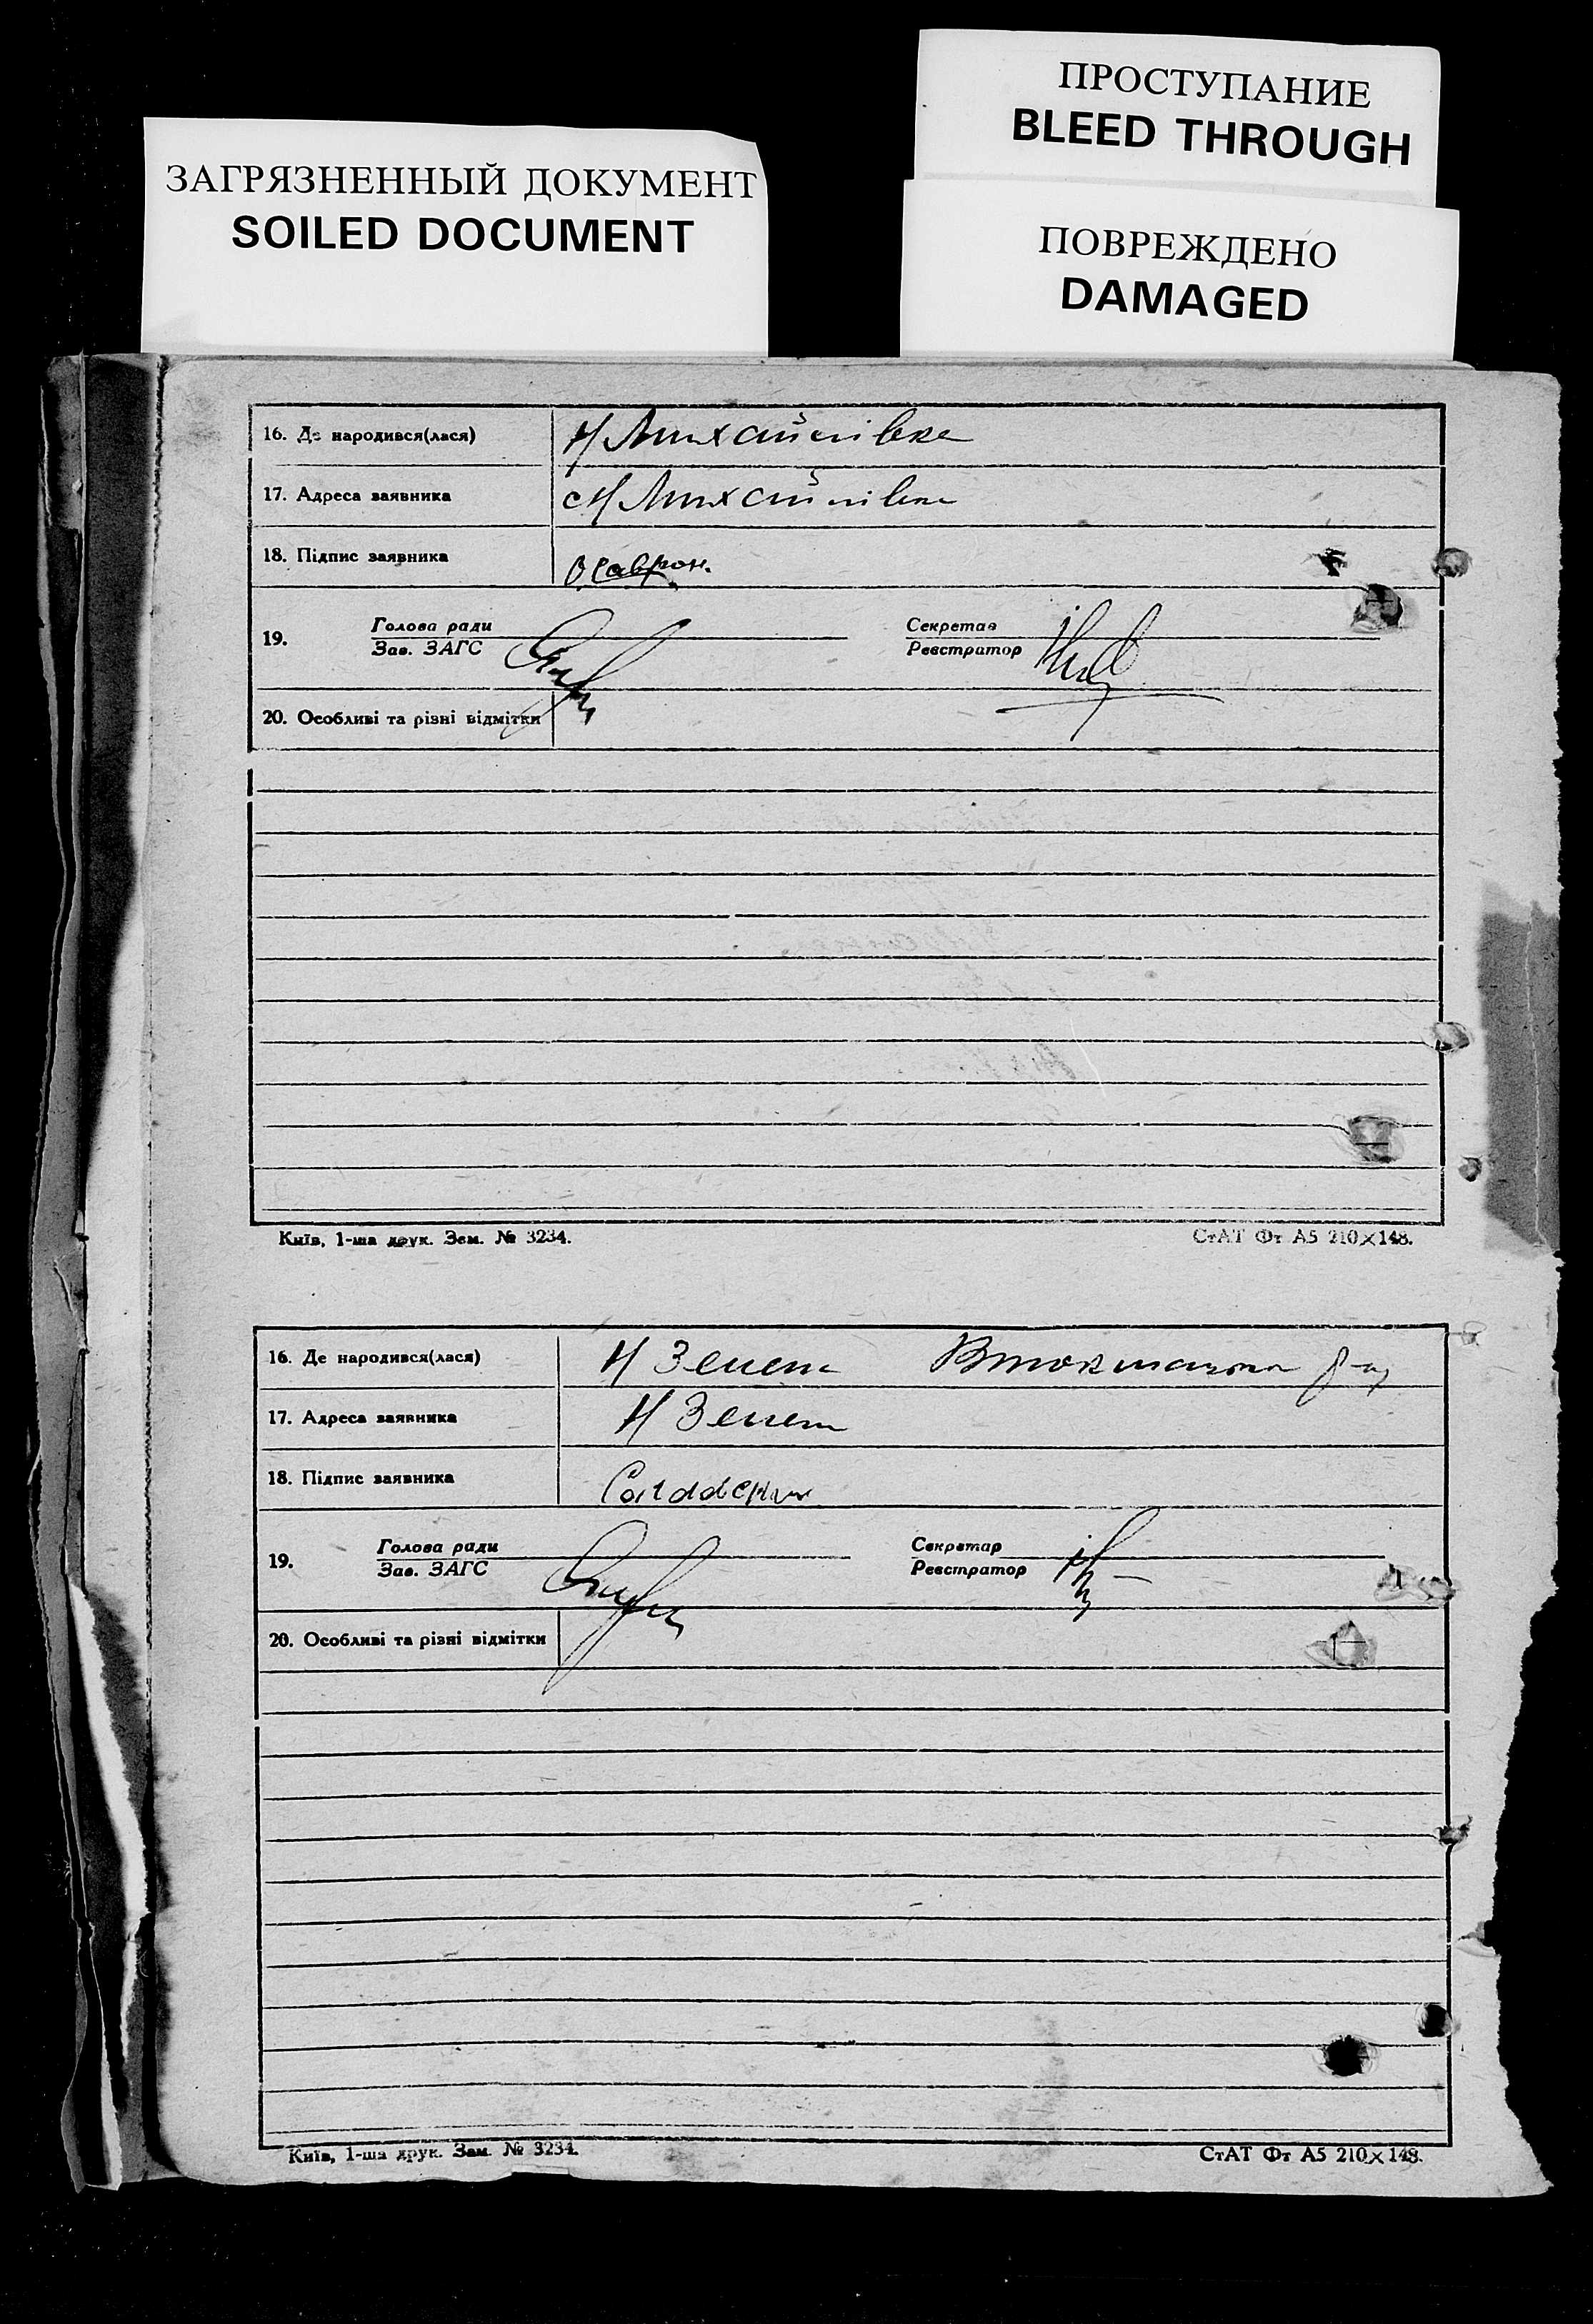 ПРОСТУПАНИЕ
BLEED THROUGH
ЗАГРЯЗНЕННЫЙ ДОКУМЕНТ
SOILED DOCUMENT
ПОВРЕЖДЕНО
DAMAGED
16. Де народився(лася) Н Михайлівка
17. Адреса заявника с Н Михайлівка
18. Підпис заявника
19. Голова ради Секретар
Зав. ЗАГС Реєстратор
20. Особливі та різні відмітки
Київ, 1-ша друк. Зам. № 3234. СтАТ Фт А5 210×148.
16. Де народився(лася) Н
17. Адреса заявника Н
18. Підпис заявника
19. Голова ради Секретар
Зав. ЗАГС Реєстратор
20. Особливі та різні відмітки
Київ, 1-ша друк. Зам. № 3234. СтАТ Фт А5 210×148.